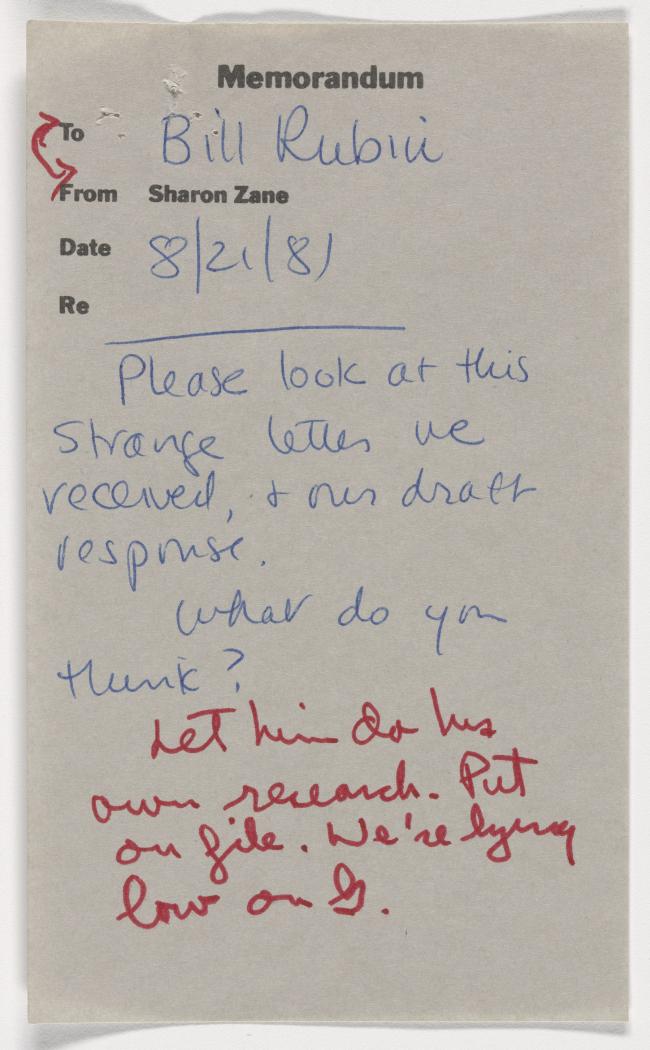 Memorandum
To Bill Rubin
From Sharon Zane
Date 8/21/81
Re
Please look at this
strange letter we
received, & our draft
response.
What do you
think?
Let him do his
own research. Put
on file. We're lying
low on G.